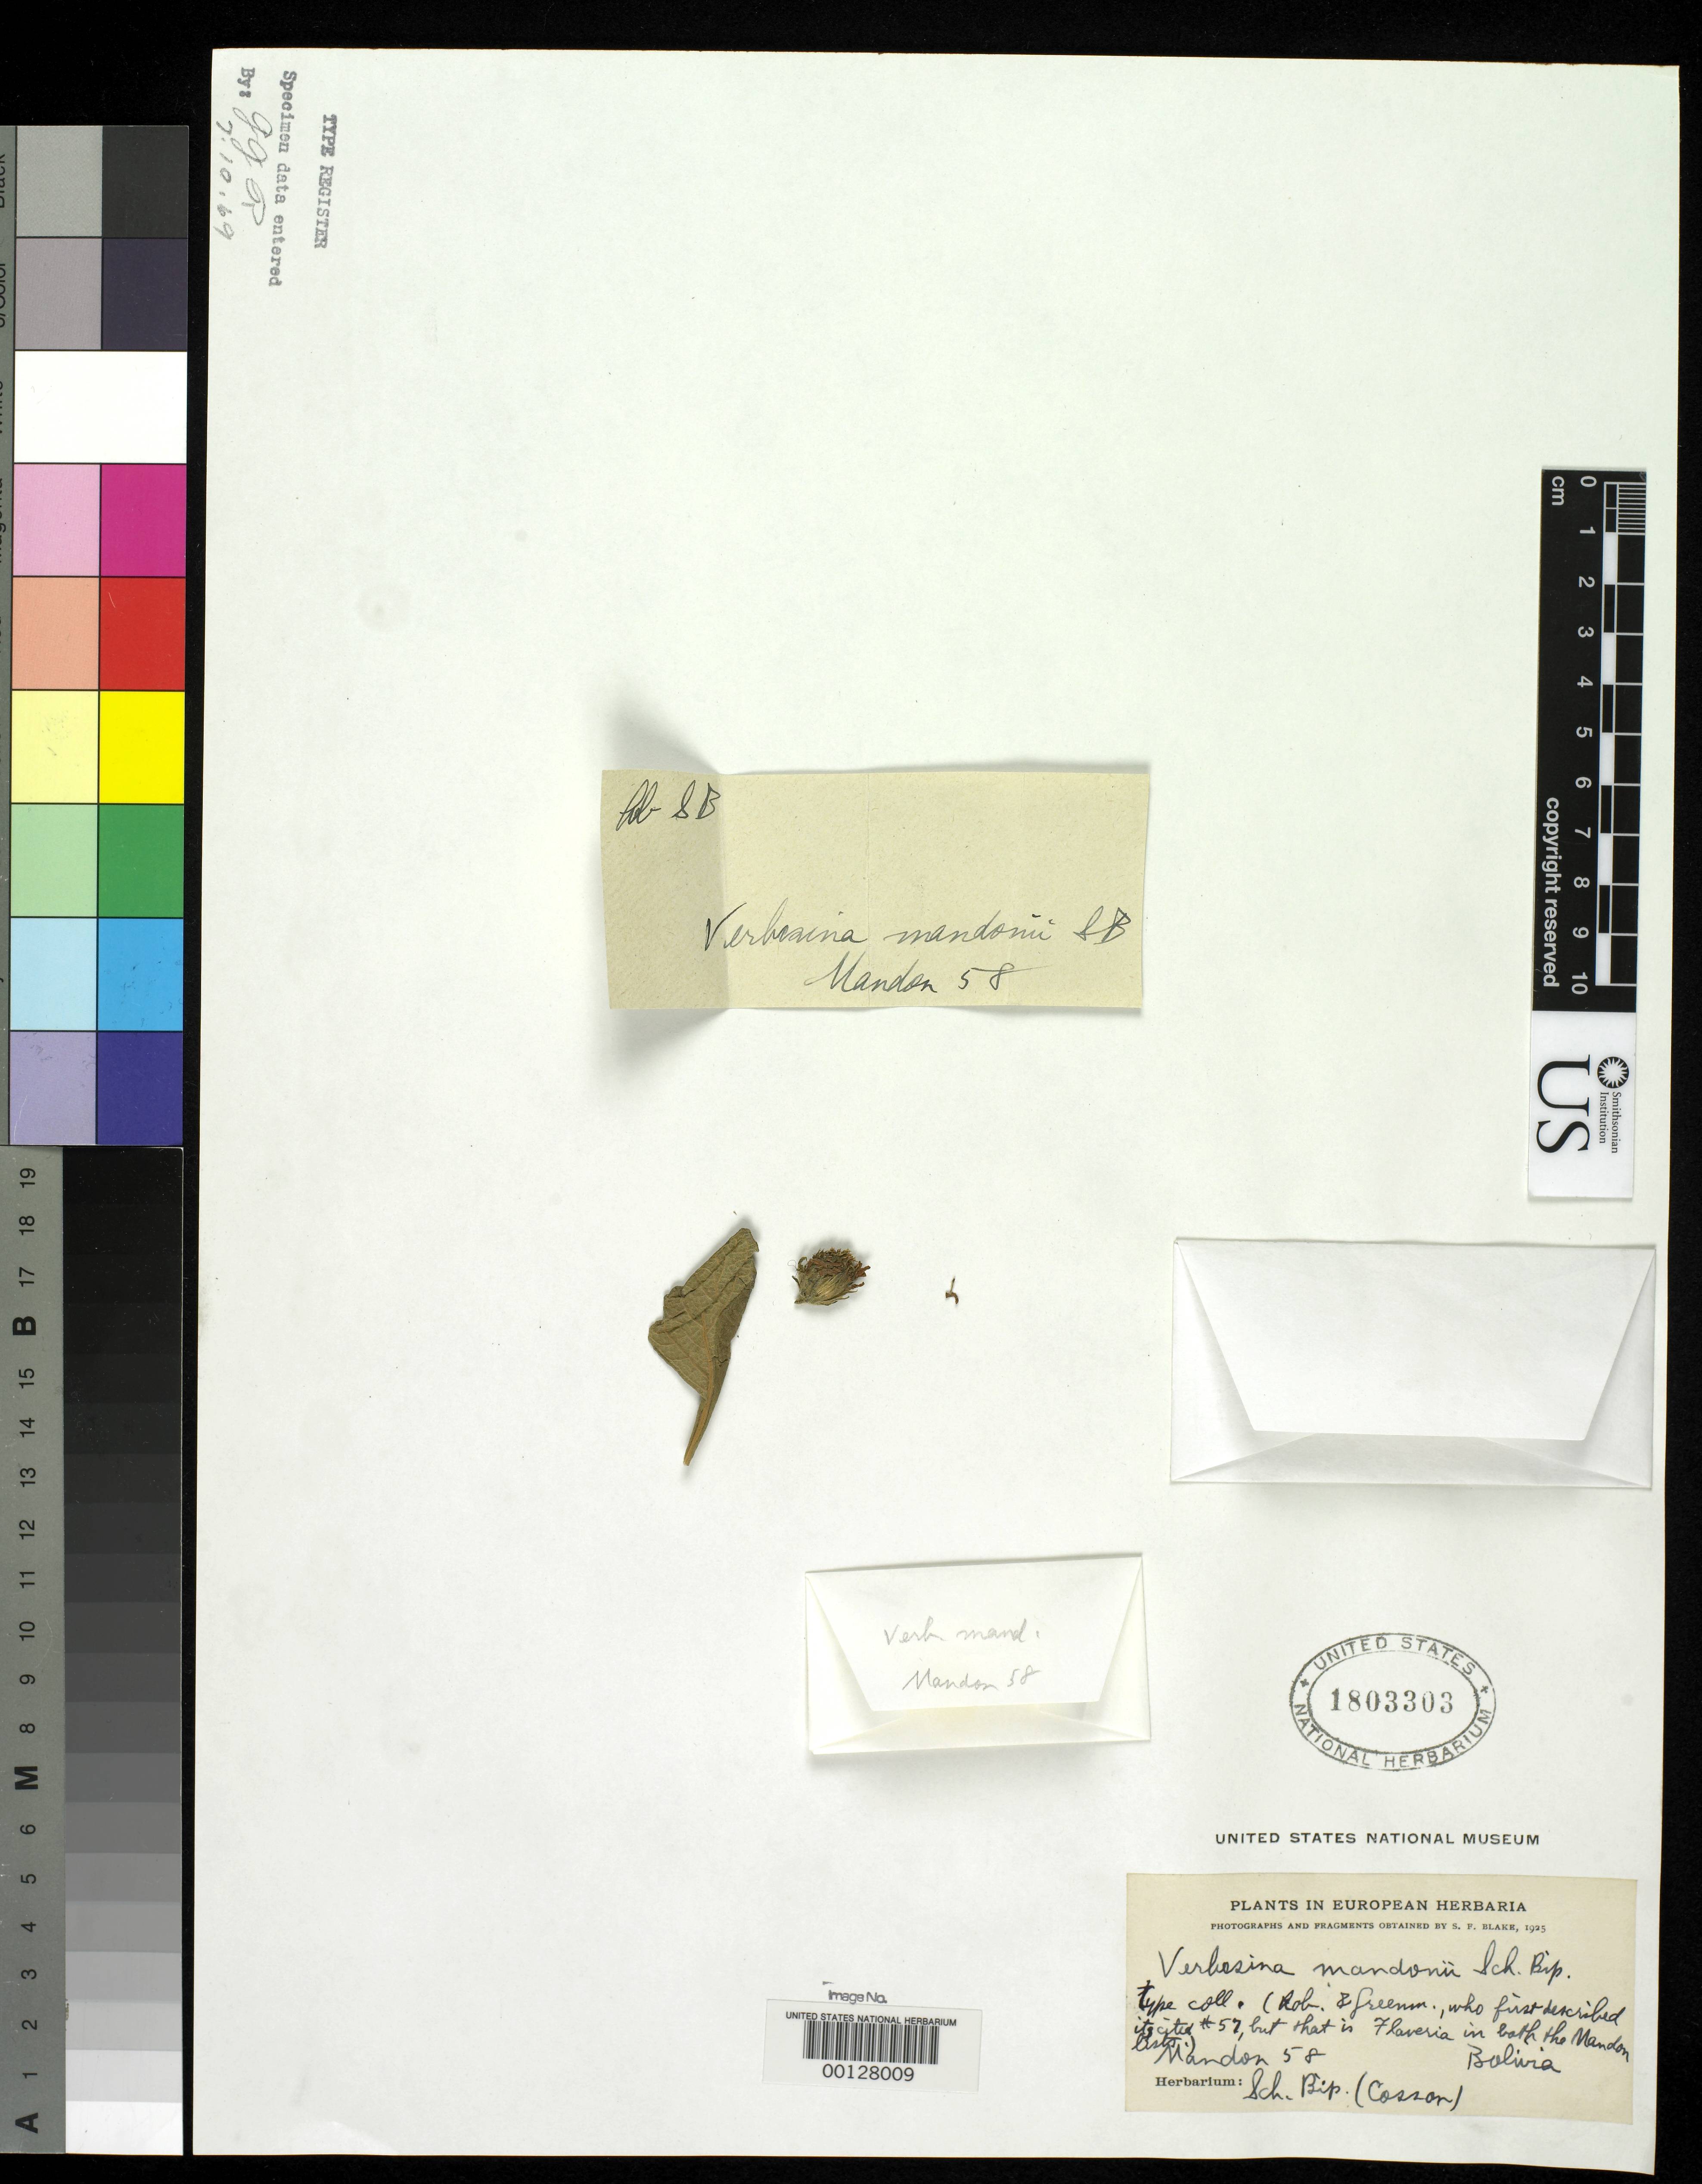 TYPE REGISTER
Specimen data entered
By:
7.10.69
SB
Verbesina mandonii SB
Mandon 58
cm
0 1 2 3 4 5 6 7 8 9 10
copyright reserved
US
Smithsonian
Institution
Verb. mand.
Mandon 58
UNITED STATES
1803303
NATIONAL HERBARIUM
UNITED STATES NATIONAL MUSEUM
PLANTS IN EUROPEAN HERBARIA
PHOTOGRAPHS AND FRAGMENTS OBTAINED BY S. F. BLAKE, 1925
Verbesina mandonii Sch. Bip.
type coll. (Rob. & Greenm., who first described
it, cited #57, but that is Flaveria in both the Mandon
lists.)
Mandon 58 Bolivia
Herbarium: Sch. Bip. (Cosson)
Image No.
UNITED STATES NATIONAL HERBARIUM
00128009
19
18
17
B
15
14
13
12
11
10
9
8
M
6
5
4
3
2
1
A